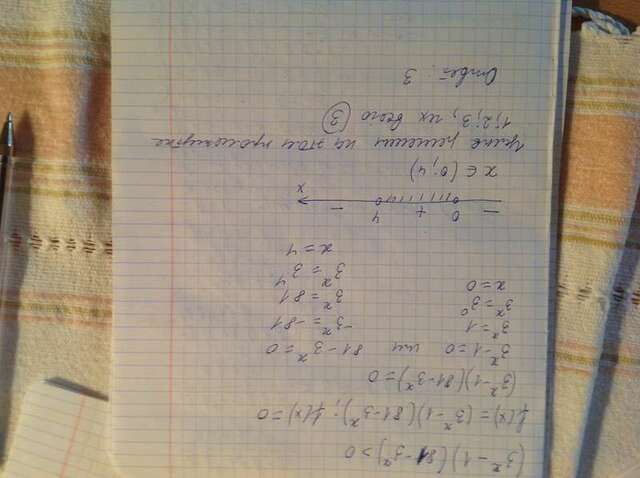 (3^x - 1)(81 - 3^x) > 0
f(x) = (3^x - 1)(81 - 3^x); f(x) = 0
(3^x - 1)(81 - 3^x) = 0
3^x - 1 = 0 или 81 - 3^x = 0
3^x = 1 -3^x = -81
3^x = 3^0 3^x = 81
x = 0 3^x = 3^4
x = 4
- 0 + 4 -
x
x ∈ (0; 4)
Целые решения на этом промежутке
1; 2; 3, их всего 3
Ответ: 3